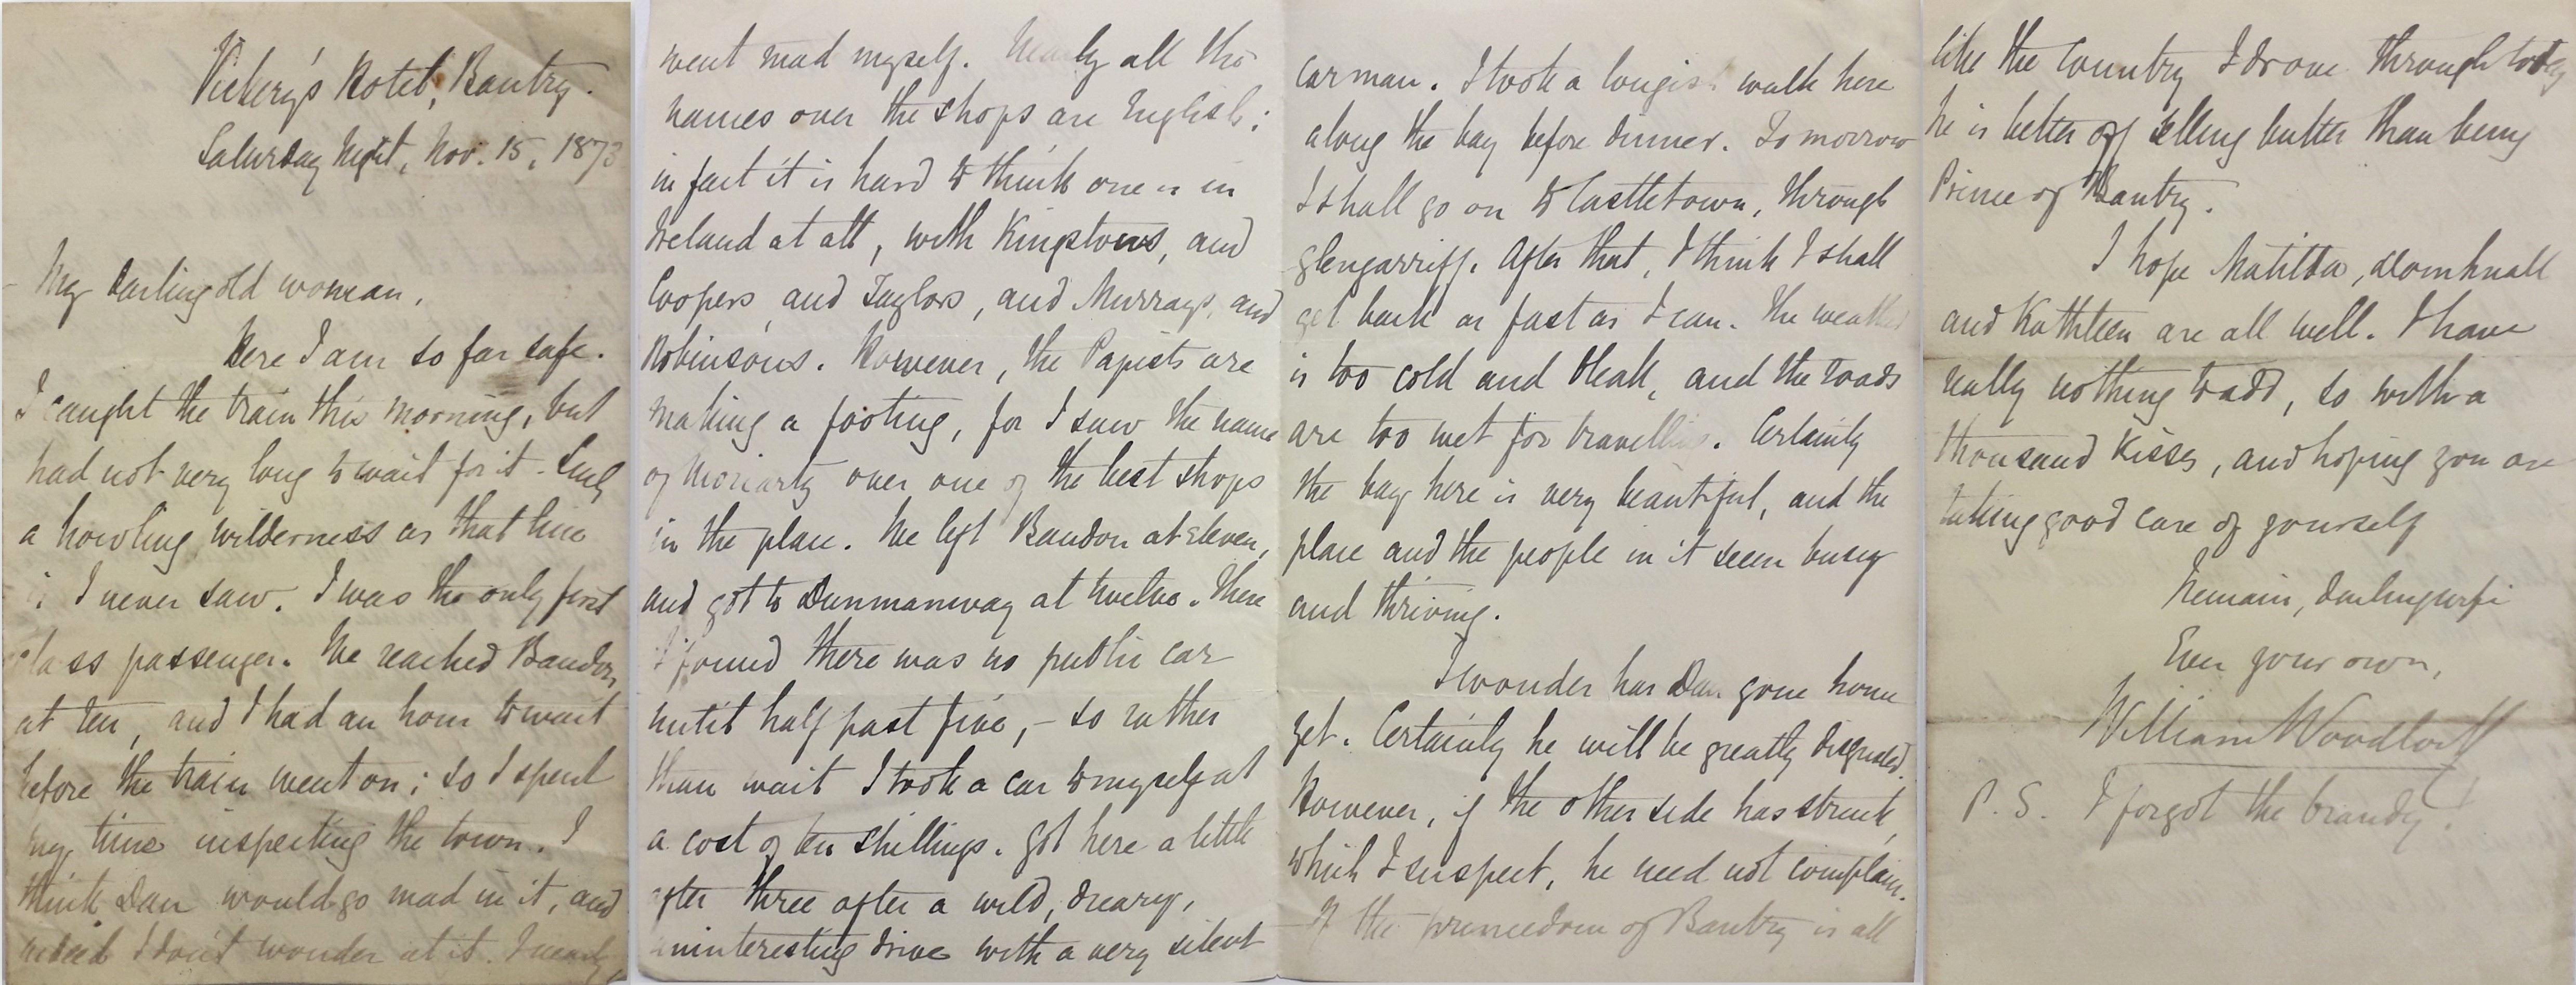 Vickery's Hotel, Bantry.
Saturday Night, Nov. 15, 1873
My darling old woman,
Here I am so far safe.
I caught the train this morning, but
had not very long to wait for it. Such
a howling wilderness as that line
is I never saw. I was the only first
class passenger. We reached Bandon
at ten, and I had an hour to wait
before the train went on; so I spent
my time inspecting the town. I
think Dan would go mad in it, and
indeed I don't wonder at it. I nearly
went mad myself. Nearly all the
names over the shops are English;
in fact it is hard to think one is in
Ireland at all, with Kingstons, and
Coopers, and Taylors, and Murrays, and
Robinsons. However, the Papists are
making a footing, for I saw the name
of Moriarty over one of the best shops
in the place. We left Bandon at eleven,
and got to Dunmanway at twelve. There
I found there was no public car
until half past five, - so rather
than wait I took a car to myself at
a cost of ten shillings. Got here a little
after three after a wild, dreary,
uninteresting drive with a very silent
carman. I took a longish walk here
along the bay before dinner. Tomorrow
I shall go on to Castletown, through
Glengarriff. After that, I think I shall
get back as fast as I can. The weather
is too cold and bleak, and the roads
are too wet for travelling. Certainly
the bay here is very beautiful, and the
place and the people in it seem busy
and thriving.
I wonder has Dan gone home
yet. Certainly he will be greatly disgusted.
However, if the other side has struck,
which I suspect, he need not complain.
If the princedom of Bantry is all
like the country I drove through today
he is better off selling butter than being
Prince of Bantry.
I hope Matilda, Domhnall
and Kathleen are all well. I have
really nothing to add, so with a
thousand kisses, and hoping you are
taking good care of yourself
I remain, darling wife
Ever your own,
William Woodlock
P. S. I forgot the brandy!